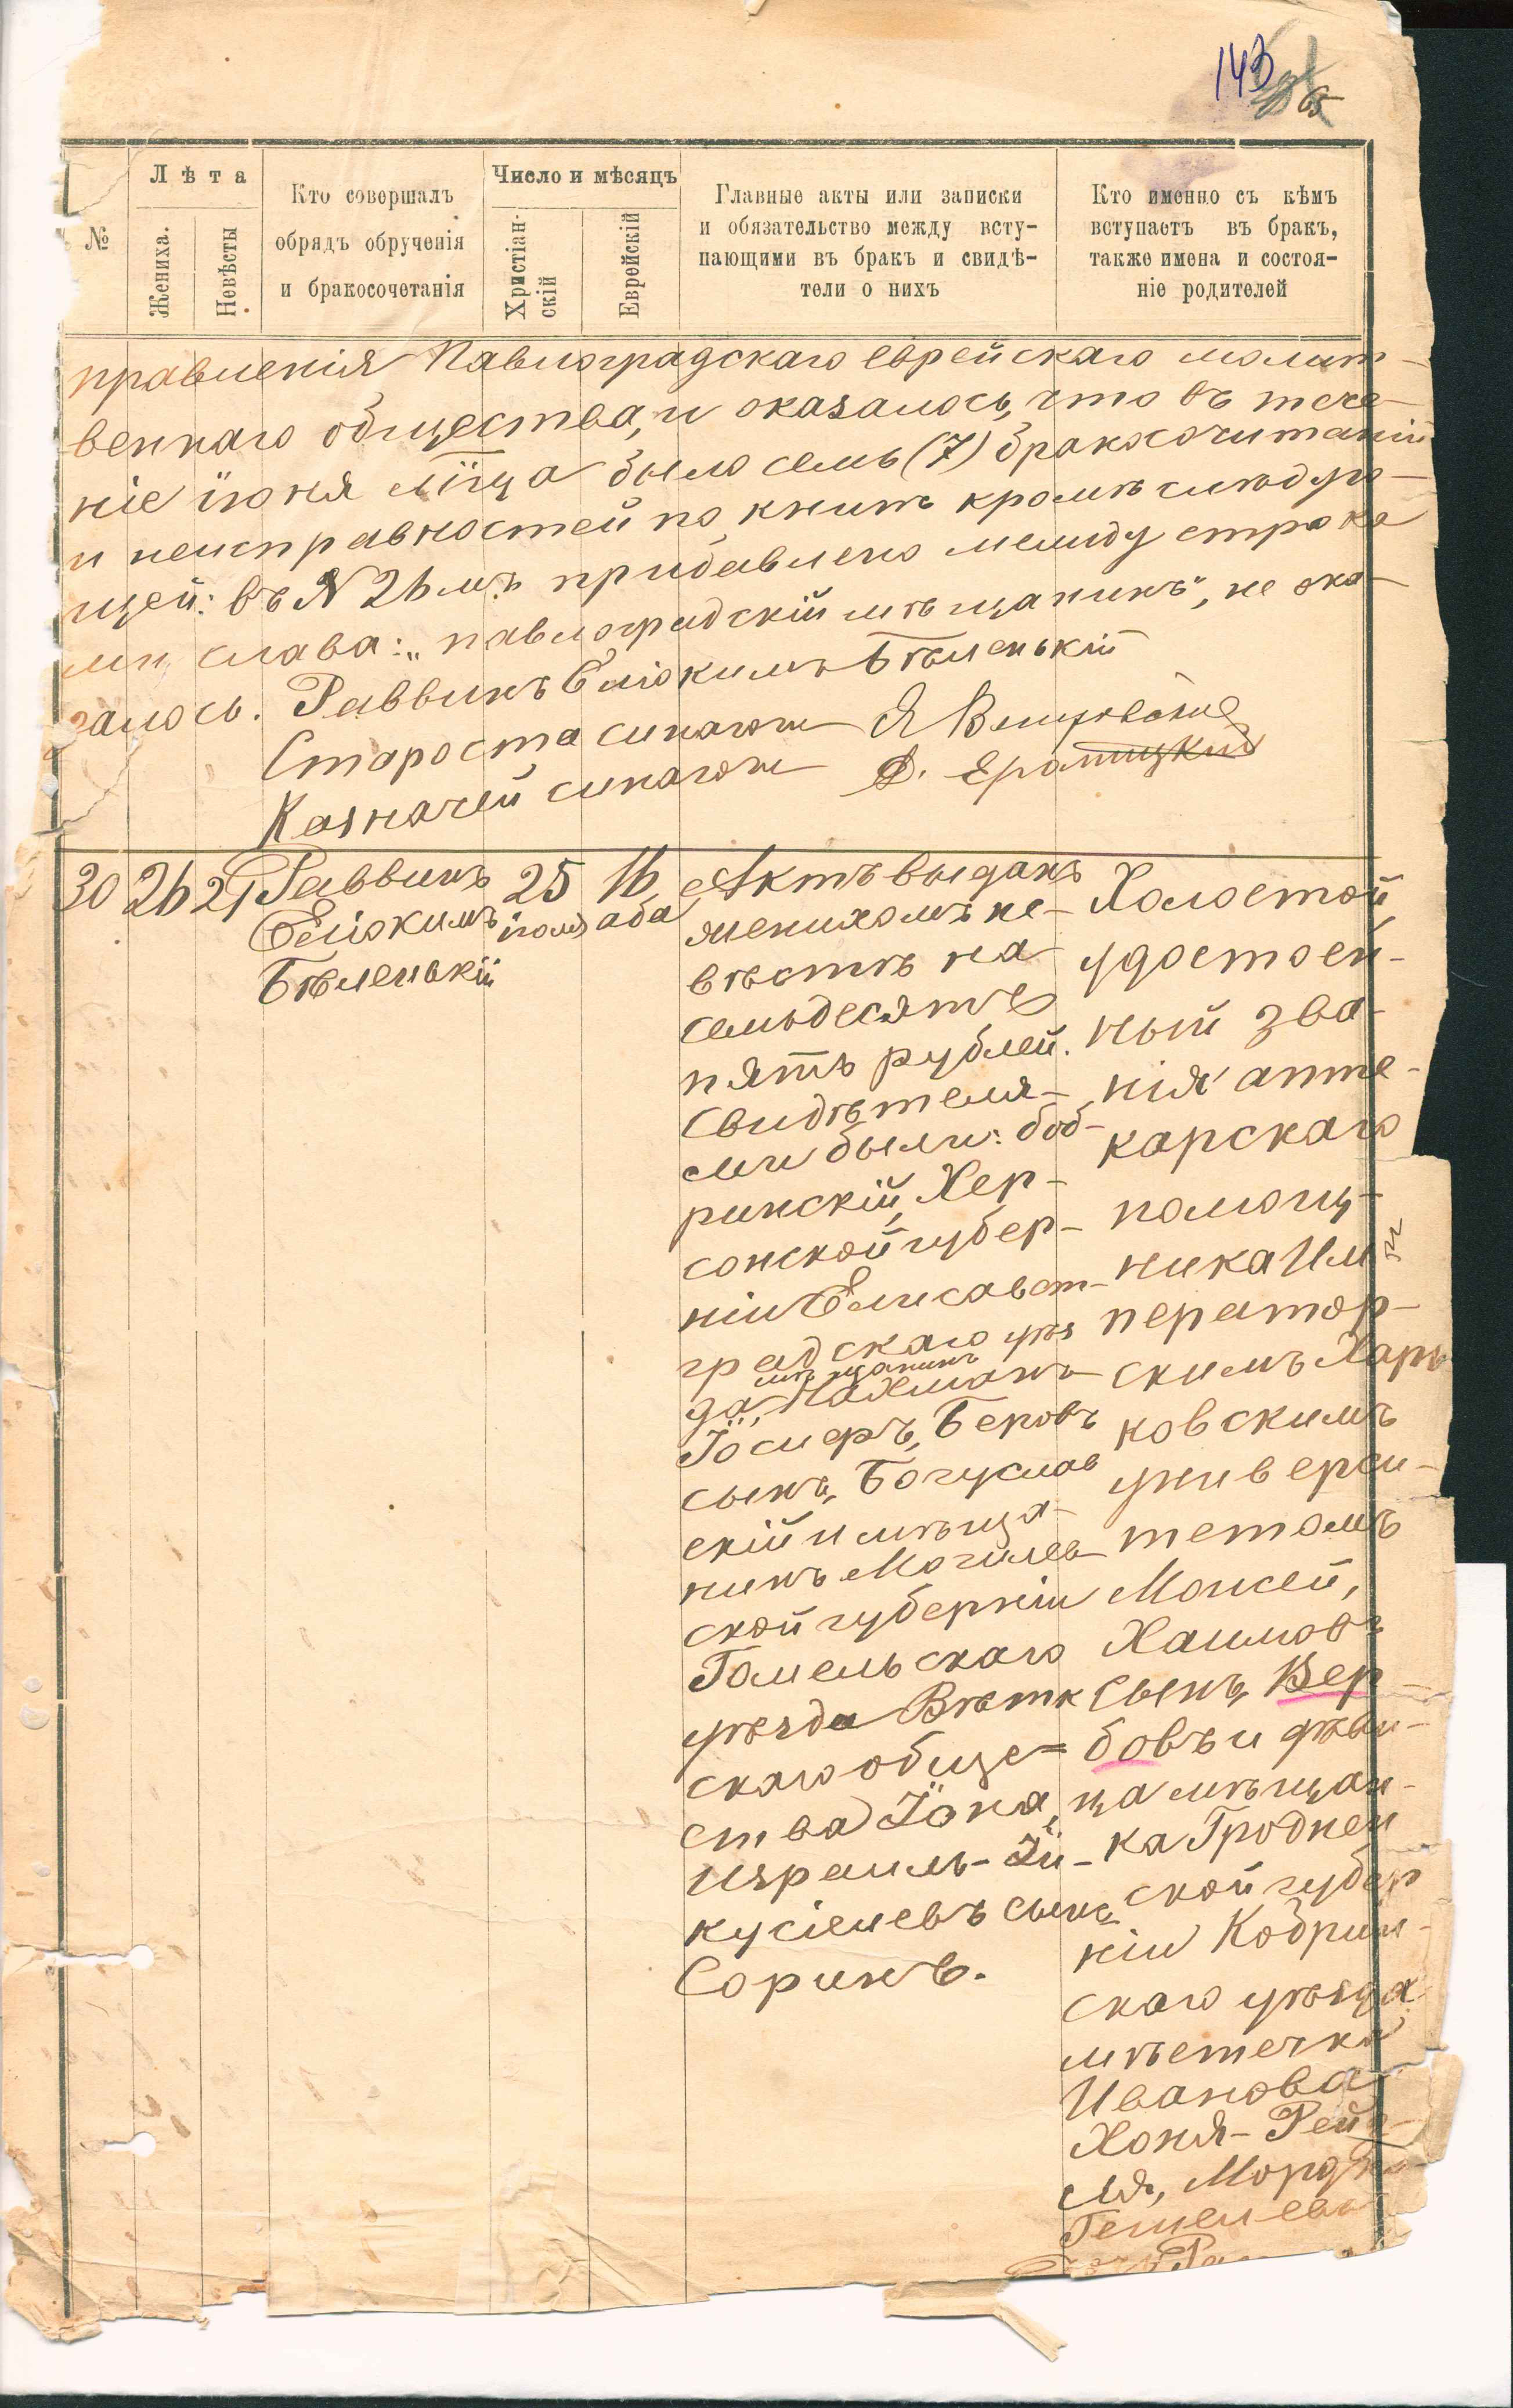 143
65
№
Лѣта
Жениха.
Невѣсты
Кто совершалъ
обрядъ обрученія
и бракосочетанія
Число и мѣсяцъ
Христіан-
скій
Еврейскій
Главные акты или записки
и обязательство между всту-
пающими въ бракъ и свидѣ-
тели о нихъ
Кто именно съ кѣмъ
вступаетъ въ бракъ,
также имена и состоя-
ніе родителей
правленія Павлоградскаго еврейскаго молит-
веннаго общества, и оказалось, что въ тече-
ніе іюня мѣца было семь (7) бракосочитаній
и неисправностей по книгѣ кромѣ слѣдую-
щей: въ № 26 мъ прибавлено между строка
ми слава: „павлоградскій мѣщанинъ", не ока-
залось. Раввинъ Еліокимъ Бѣленькій
Староста синагоги Я
Казначей синагоги
30
26
21
Раввинъ
Еліокимъ
Бѣленькій
25
іюля
16
аба
Актъ выданъ
женихомъ не-
вѣстѣ на
семьдесятъ
пять рублей.
Свидѣтеля-
ми были: боб-
ринскій, Хер-
сонской губер-
ніи Елисавет-
градскаго уѣз
мѣщанинъ
да, Нахманъ
Іосифъ, Беровъ
сынъ, Богуслав
скій и мѣща-
нинъ Могилев
ской губерніи
Гомельскаго
уѣзда Вѣтк
скаго обще=
ства Іона,
Израиль-Іи-
кусіелевъ сынъ
Соринъ.
Холостой,
удостоен-
ный зва-
нія апте-
карскаго
помощ-
ника Им
ператор-
скимъ Харь
ковскимъ
универси-
тетомъ
Моисей,
Хаимовъ
сынъ, Вер-
бовъ и дѣви-
ца мѣщан-
ка Гроднен
ской губер
ніи Кобрин-
скаго уѣзда
мѣстечка
Иванова
Хоня-Рейз-
ля, Мордко-